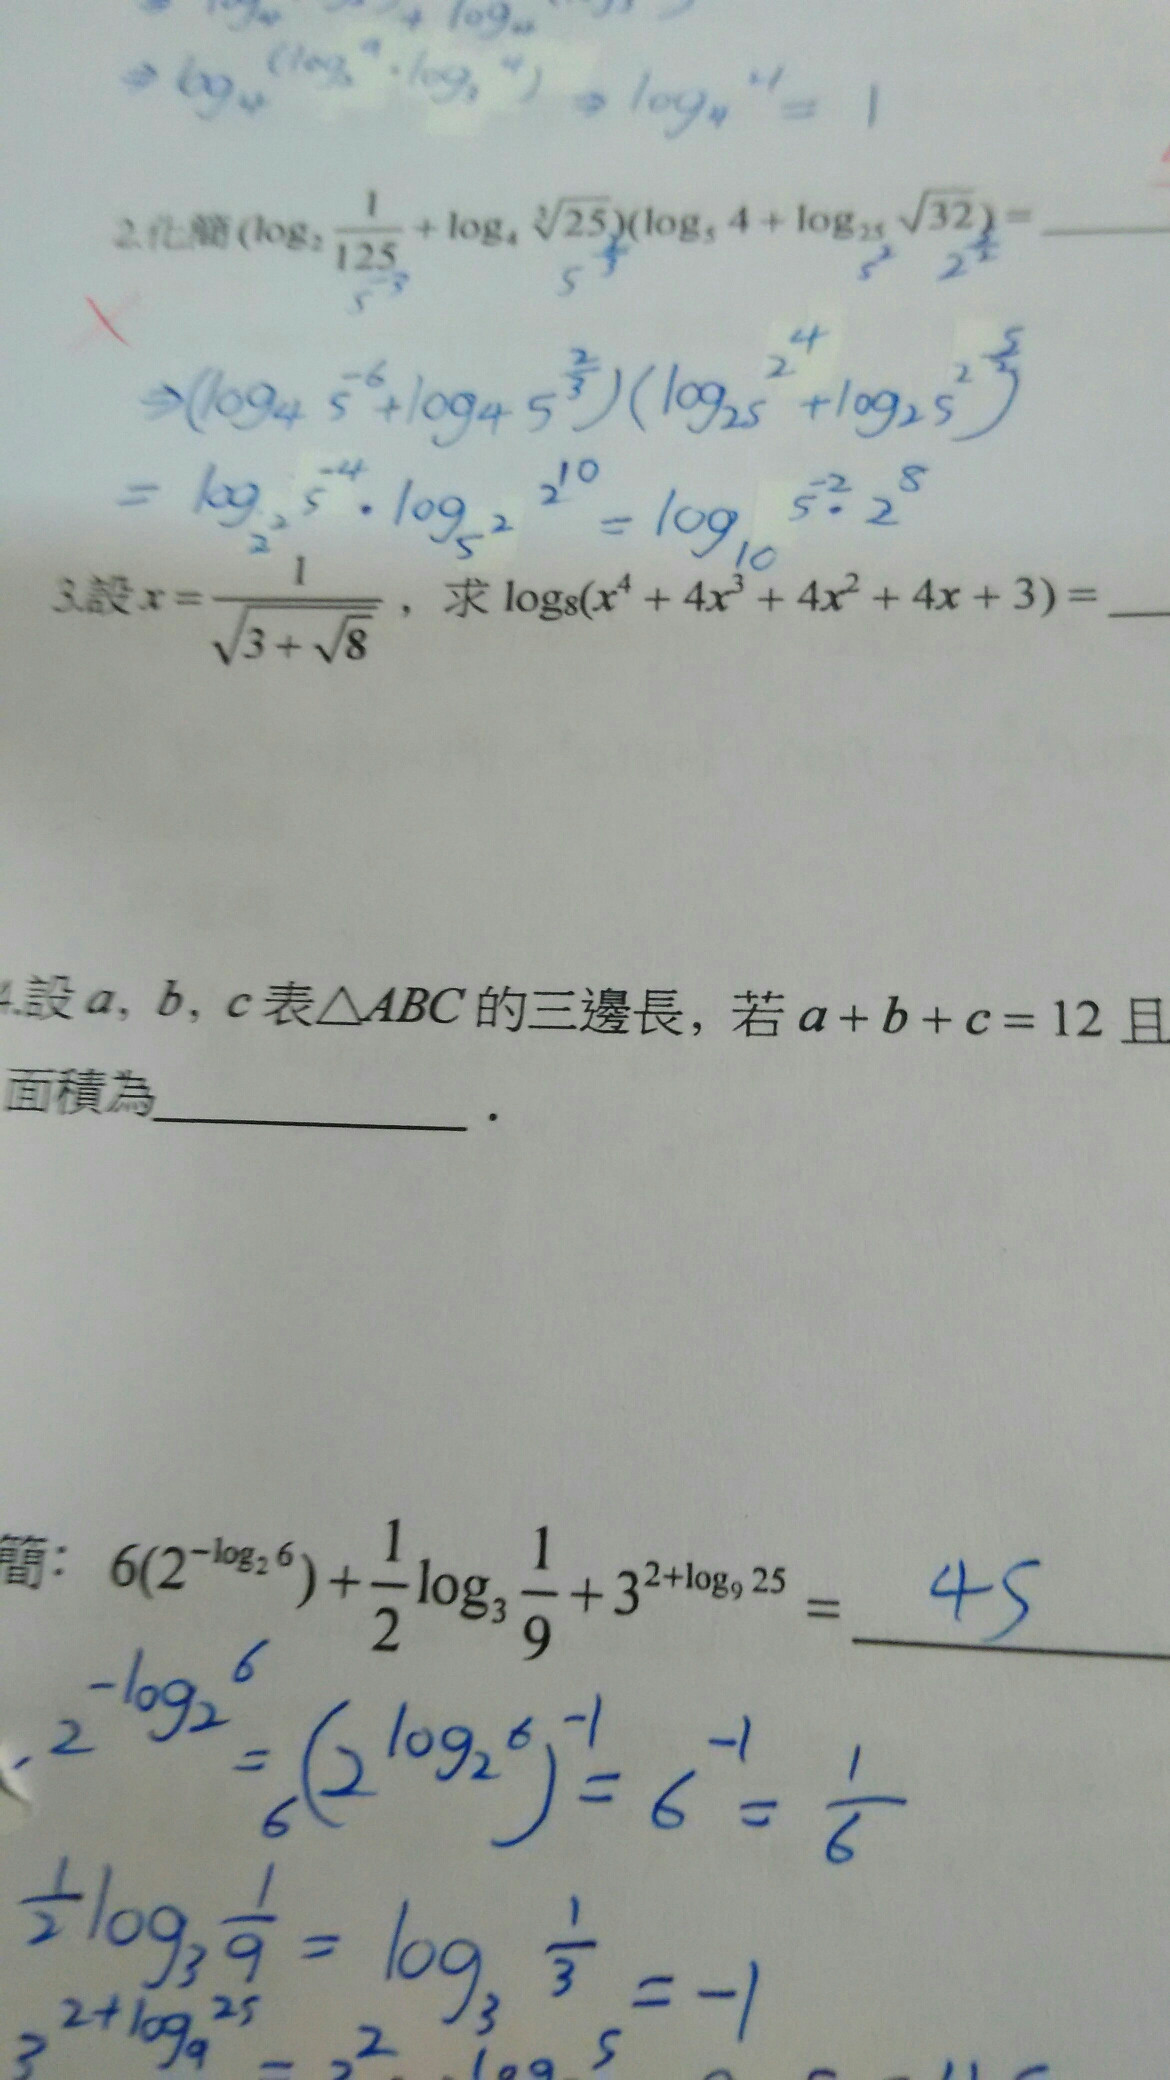 ⇒ log₄(log₃⁴ · log₃⁴) ⇒ log₄⁴ = 1
2.化簡(log₂ 1/125 + log₄ ∛25)(log₅ 4 + log₂₅ √32) = ____
5⁻³ 5^(2/3) 5² 2^(5/2)
⇒(log₄ 5⁻⁶ + log₄ 5^(2/3))(log₂₅ 2⁴ + log₂₅ 2^(5/2))
= log₂² 5⁻⁴ · log₅² 2¹⁰ = log₁₀ 5⁻² · 2⁸
3.設 x = 1/√(3+√8) , 求 log₈(x⁴ + 4x³ + 4x² + 4x + 3) = __
4.設 a, b, c 表△ABC 的三邊長, 若 a + b + c = 12 且
面積為________.
簡: 6(2^(−log₂ 6)) + 1/2 log₃ 1/9 + 3^(2+log₉ 25) = 45
2^(−log₂ 6) = 6(2^(log₂ 6))⁻¹ = 6⁻¹ = 1/6
1/2 log₃ 1/9 = log₃ 1/3 = −1
3^(2+log₉ 25) =